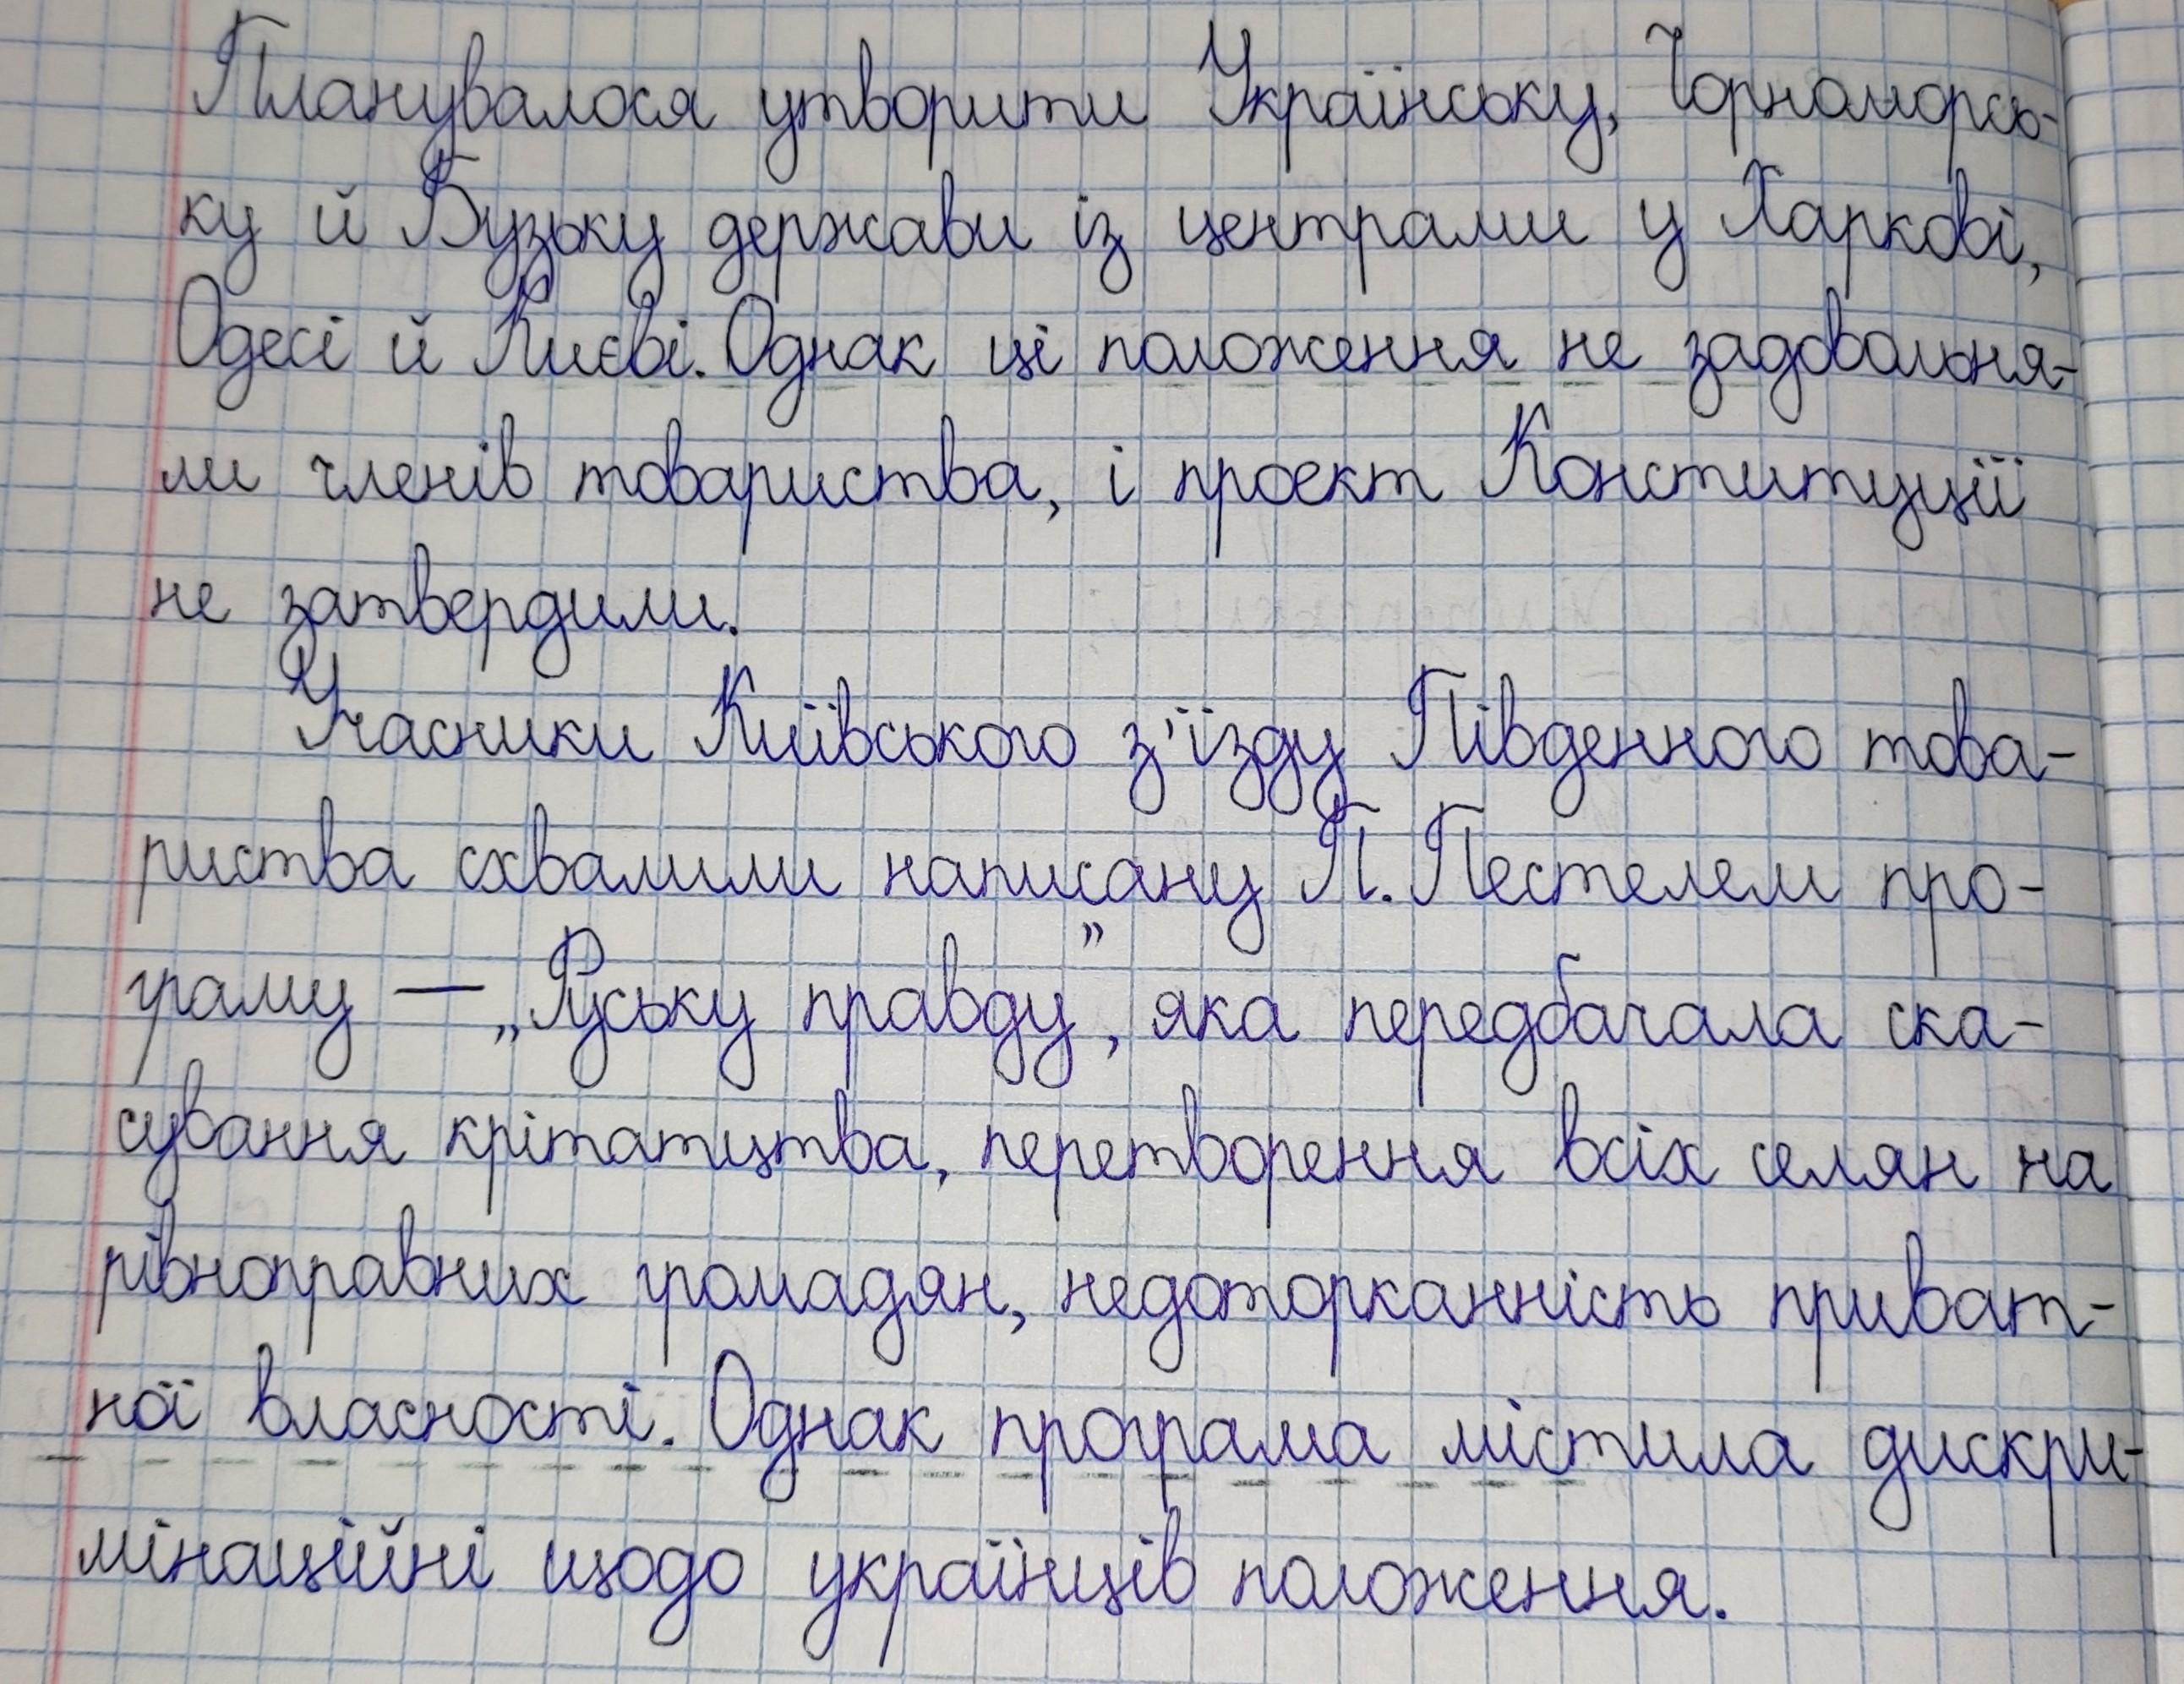 Планувалося утворити Українську, Чорноморсь-
ку й Бузьку держави із центрами у Харкові,
Одесі й Києві. Однак ці положення не задовольня-
ли членів товариства, і проєкт Конституції
не затвердили.
Учасники Київського з'їзду Південного това-
риства схвалили написану П. Пестелем про-
граму — „Руську правду”, яка передбачала ска-
сування кріпатцтва, перетворення всіх селян на
рівноправних громадян, недоторканність приват-
ної власності. Однак програма містила дискри-
мінаційні щодо українців положення.